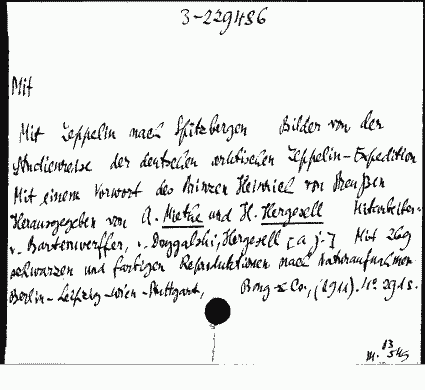 3-229486
Mit
Mit Zeppelin nach Spitzbergen Bilder von der
Studienreise der deutschen arktischen Zeppelin-Expedition
Mit einem Vorwort des Prinzen Heinrich von Preußen
Herausgegeben von A. Miethe und H. Hergesell Mitarbeiter:
v. Bartenwerffer, v. Drygalski, Hergesell [a. j.] Mit 269
schwarzen und farbigen Reproduktionen nach Naturaufnahmen
Berlin-Leipzig-Wien-Stuttgart, Bong & Co., (1911). 4º 291 S.